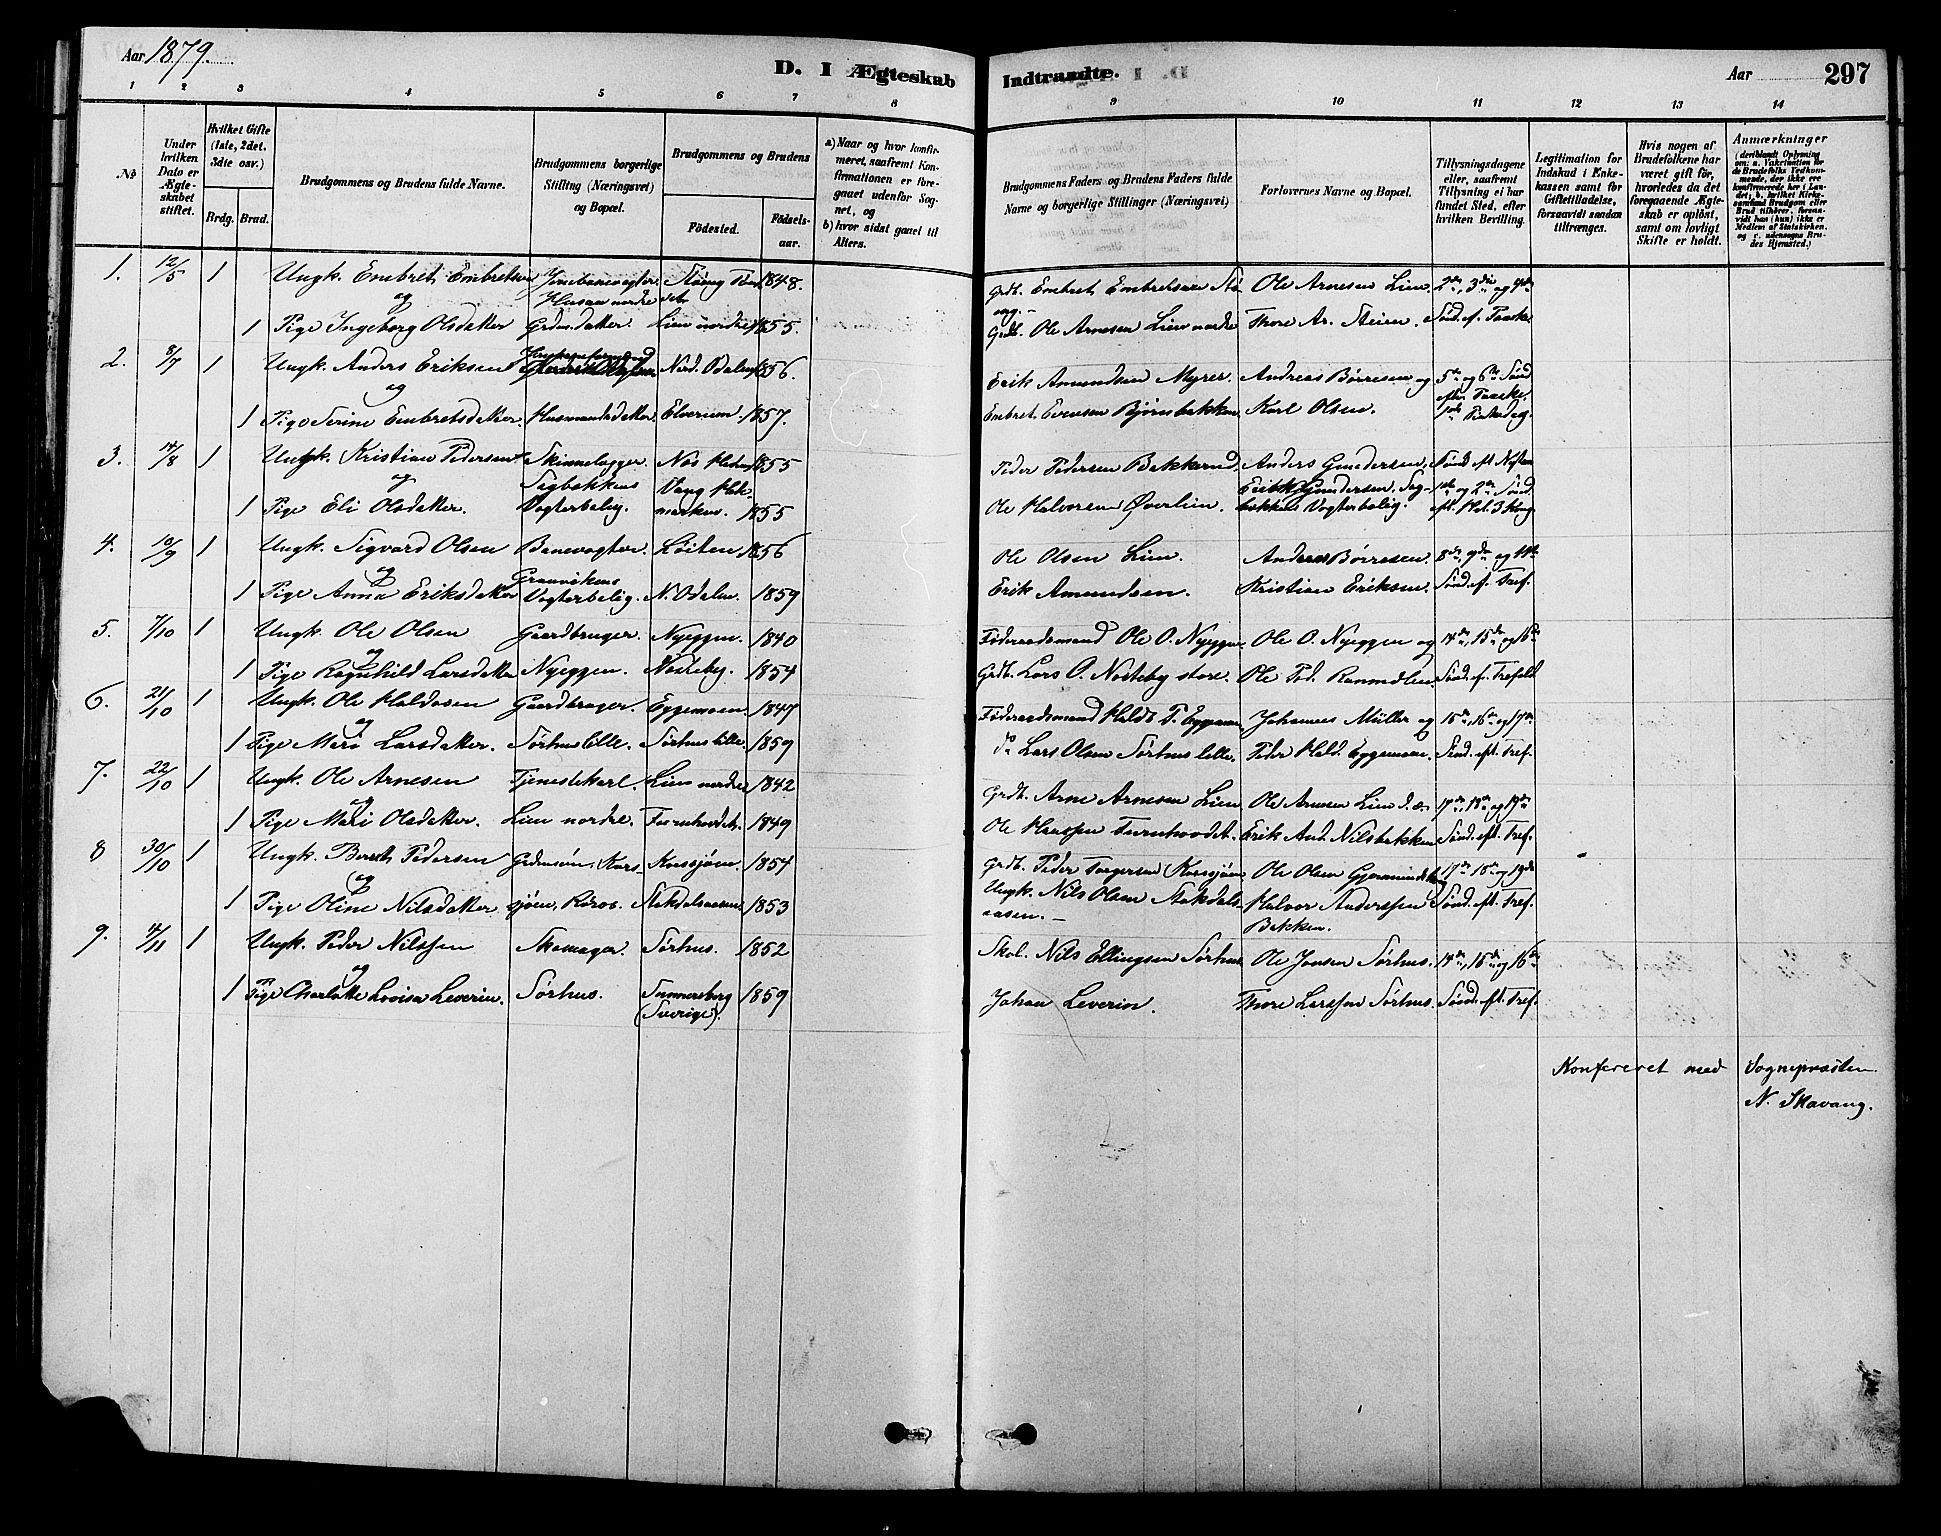 Aar 1879.
D. I Ægteskab Indtraadte.
Aar 297
1 2 3 4 5 6 7 8 9 10 11 12 13 14
No
Under hvilken Dato er Ægteskabet stiftet.
Hvilket Gifte (1ste, 2det, 3dte osv.)
Brdg. Brud.
Brudgommens og Brudens fulde Navne.
Brudgommens borgerlige Stilling (Næringsvei) og Bopæl.
Brudgommens og Brudens
Fødested.
Fødselsaar.
a) Naar og hvor konfirmeret, saafremt Konfirmationen er foregaaet udenfor Sognet, og
b) hvor sidst gaaet til Alters.
Brudgommens Faders og Brudens Faders fulde Navne og borgerlige Stillinger (Næringsvei)
Forlovernes Navne og Bopæl.
Tillysningsdagene eller, saafremt Tillysning ei har fundet Sted, efter hvilken Bevilling.
Legitimation for Indskud i Enkekassen samt for Giftetilladelse, forsaavidt saadan tiltrænges.
Hvis nogen af Brudefolkene har været gift før, hvorledes da det foregaaende Ægteskab er opløst, samt om lovligt Skifte er holdt.
Anmærkninger
1. 12/5 1 Ungk. Embret Embretsen Jernbanevogter 1848. Grdb. Embret Embretsen Ole Arnesen Lien. 2den, 3die og 4de
og
1 Pige Ingeborg Olsdatter Grdm.datter. Lien nordre 1855. Grdb. Ole Arnesen Lien nordre Thore Ar. Steier. Sønd. ef. Paaske
2. 8/7 1 Ungk. Anders Eriksen Nord. Odalen 1856. Erik Amundsen Myrer. Andreas Børresen og 5te og 6te Sønd
og efter Paaske,
1 Pige Serine Embretsdatter. Husmandsdatter. Elverum. 1857. Embret Evensen Bjørnbakken Karl Olsen. 1ste Pintsedag.
3. 14/8 1 Ungk. Kristian Pedersen Skinnelægger. Næs Hedm. 1855 Peder Pedersen Bakkerud Anders Gundersen,
og Sagbakkens Vang Hed- Erik Gundersen. Sag- 1ste og 2den Sønd.
1 Pige Eli Olsdatter. Vogterbolig. marken. 1855 Ole Halvorsen Øverlien. bakkens Vogterbolig. eft. Hel. 3 Kong
4. 10/9 1 Ungk. Sigvard Olsen Banevogter Løiten. 1856 Ole Olsen Lien. Andreas Børresen. 8de, 9de og
og
1 Pige Anna Eriksdatter Vogterbolig. N. Odalen. 1859 Erik Amundsen. Kristian Eriksen. Sønd. ef. Tref.
5. 7/10 1 Ungk. Ole Olsen Gaardbruger. Nyeggen. 1840 Føderaadsmand Ole O. Nyeggen Ole O. Nyeggen og 14de, 15de og 16de
og
1 Pige Ragnhild Larsdatter Nyeggen. Nosteby. 1854 Grdb. Lars O. Nosteby store. Ole Ped. Sønd. ef. Trefold
6. 21/10 1 Ungk. Ole Haldosen Gaardbruger. Eggemoen. 1847 Føderaadsmand Hald. P. Eggemoen Johannes Müller og 15de, 16de og 17de
og
1 Pige Mari Larsdatter. Sørhus lille. Sørhus lille. 1859 do Lars Olsen Sørhus lille. Peder Hald. Eggemoen. Sønd. eft. Tref.
7. 22/10 1 Ungk. Ole Arnesen Tjenestekarl. Lien nordre 1842 Grdb. Arne Arnesen Lien Ole Arnesen Lien 17de, 18de og 19de
og
1 Pige Mari Olsdatter. Lien nordre. Furuhovdet. 1849 Ole Hanssen Furuhovdet. Erik And. Nilsbakken Sønd. eft. Tref.
8 30/10 1 Ungk. Berent Pedersen Grdmsøn, Kors- Korssjøen. 1854 Grdb. Peder Torgersen Korssjøen Ole Olsen 17de, 18de og 19de
og Ungk. Nils Olsen Stokdals-
1 Pige Oline Nilsdatter sjøen, Røros. Stokdalsaasen. 1853 aasen. Halvor Anderssen Sønd. eft. Tref.
Bakken.
9. 4/11 1 Ungk. Peder Nilssen Skomager. Sørhus. 1852 Skol. Nils Ellingsen Sørhus Ole Jonsen Sørhus. 14de, 15de og 16de
og
1 Pige Charlotte Lovise Leverin. Sørhus. Sunnersberg 1859 Johan Leverin. Thore Larssen Sørhus. Sønd. eft. Tref.
(Sverige).
Konfereret med Sognepræsten
N. Skavang.